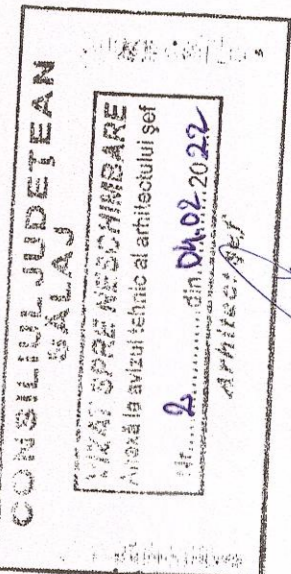 CONSILIUL JUDEȚEAN
SĂLAJ
VIZAT SPRE NESCHIMBARE
Anexă la avizul tehnic al arhitectului șef
Nr. 2 din 04.02.2022
Arhitect Șef